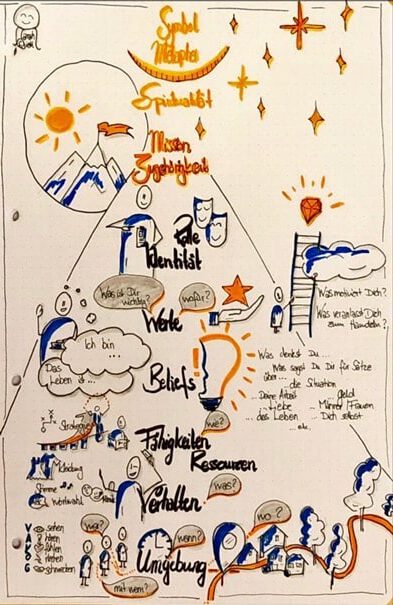 Symbol
Metapher
Spiritualität
Mission
Zugehörigkeit
Rolle
Identität
Was ist Dir
wichtig?
wofür?
Werte
Was motiviert Dich?
Was veranlasst Dich
zum Handeln?
Ich bin ...
Das
Leben ist ...
Beliefs
Was denkst Du ...
Was sagst Du Dir für Sätze
über ...
... die Situation
... Deine Arbeit
... Geld
... Liebe
... Männer / Frauen
... das Leben
... Dich selbst
... etc.
wie?
Strategie
Fähigkeiten
Ressourcen
Meldung
Stimme
Wortwahl
was?
Verhalten
V sehen
A hören
K fühlen
O riechen
G schmecken
wer?
wann?
wo?
Umgebung
mit wem?